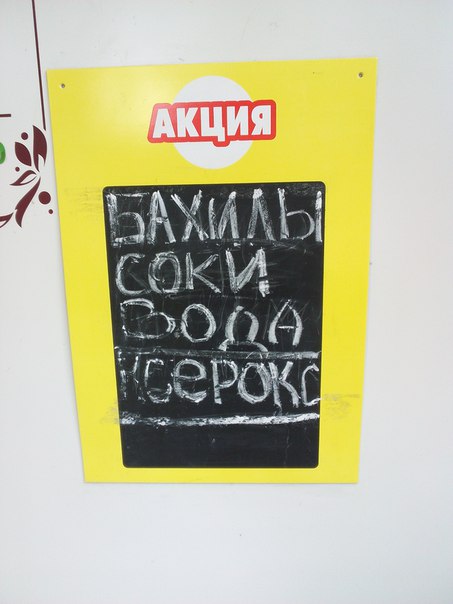 АКЦИЯ
БАХИЛЫ
СОКИ
ВОДА
КСЕРОКС